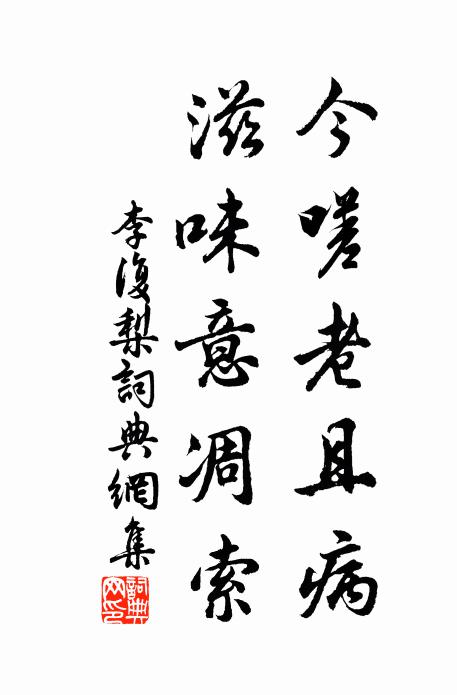 今嗟老且病
滋味意凋索
李復梨詞典網集
詞典網印